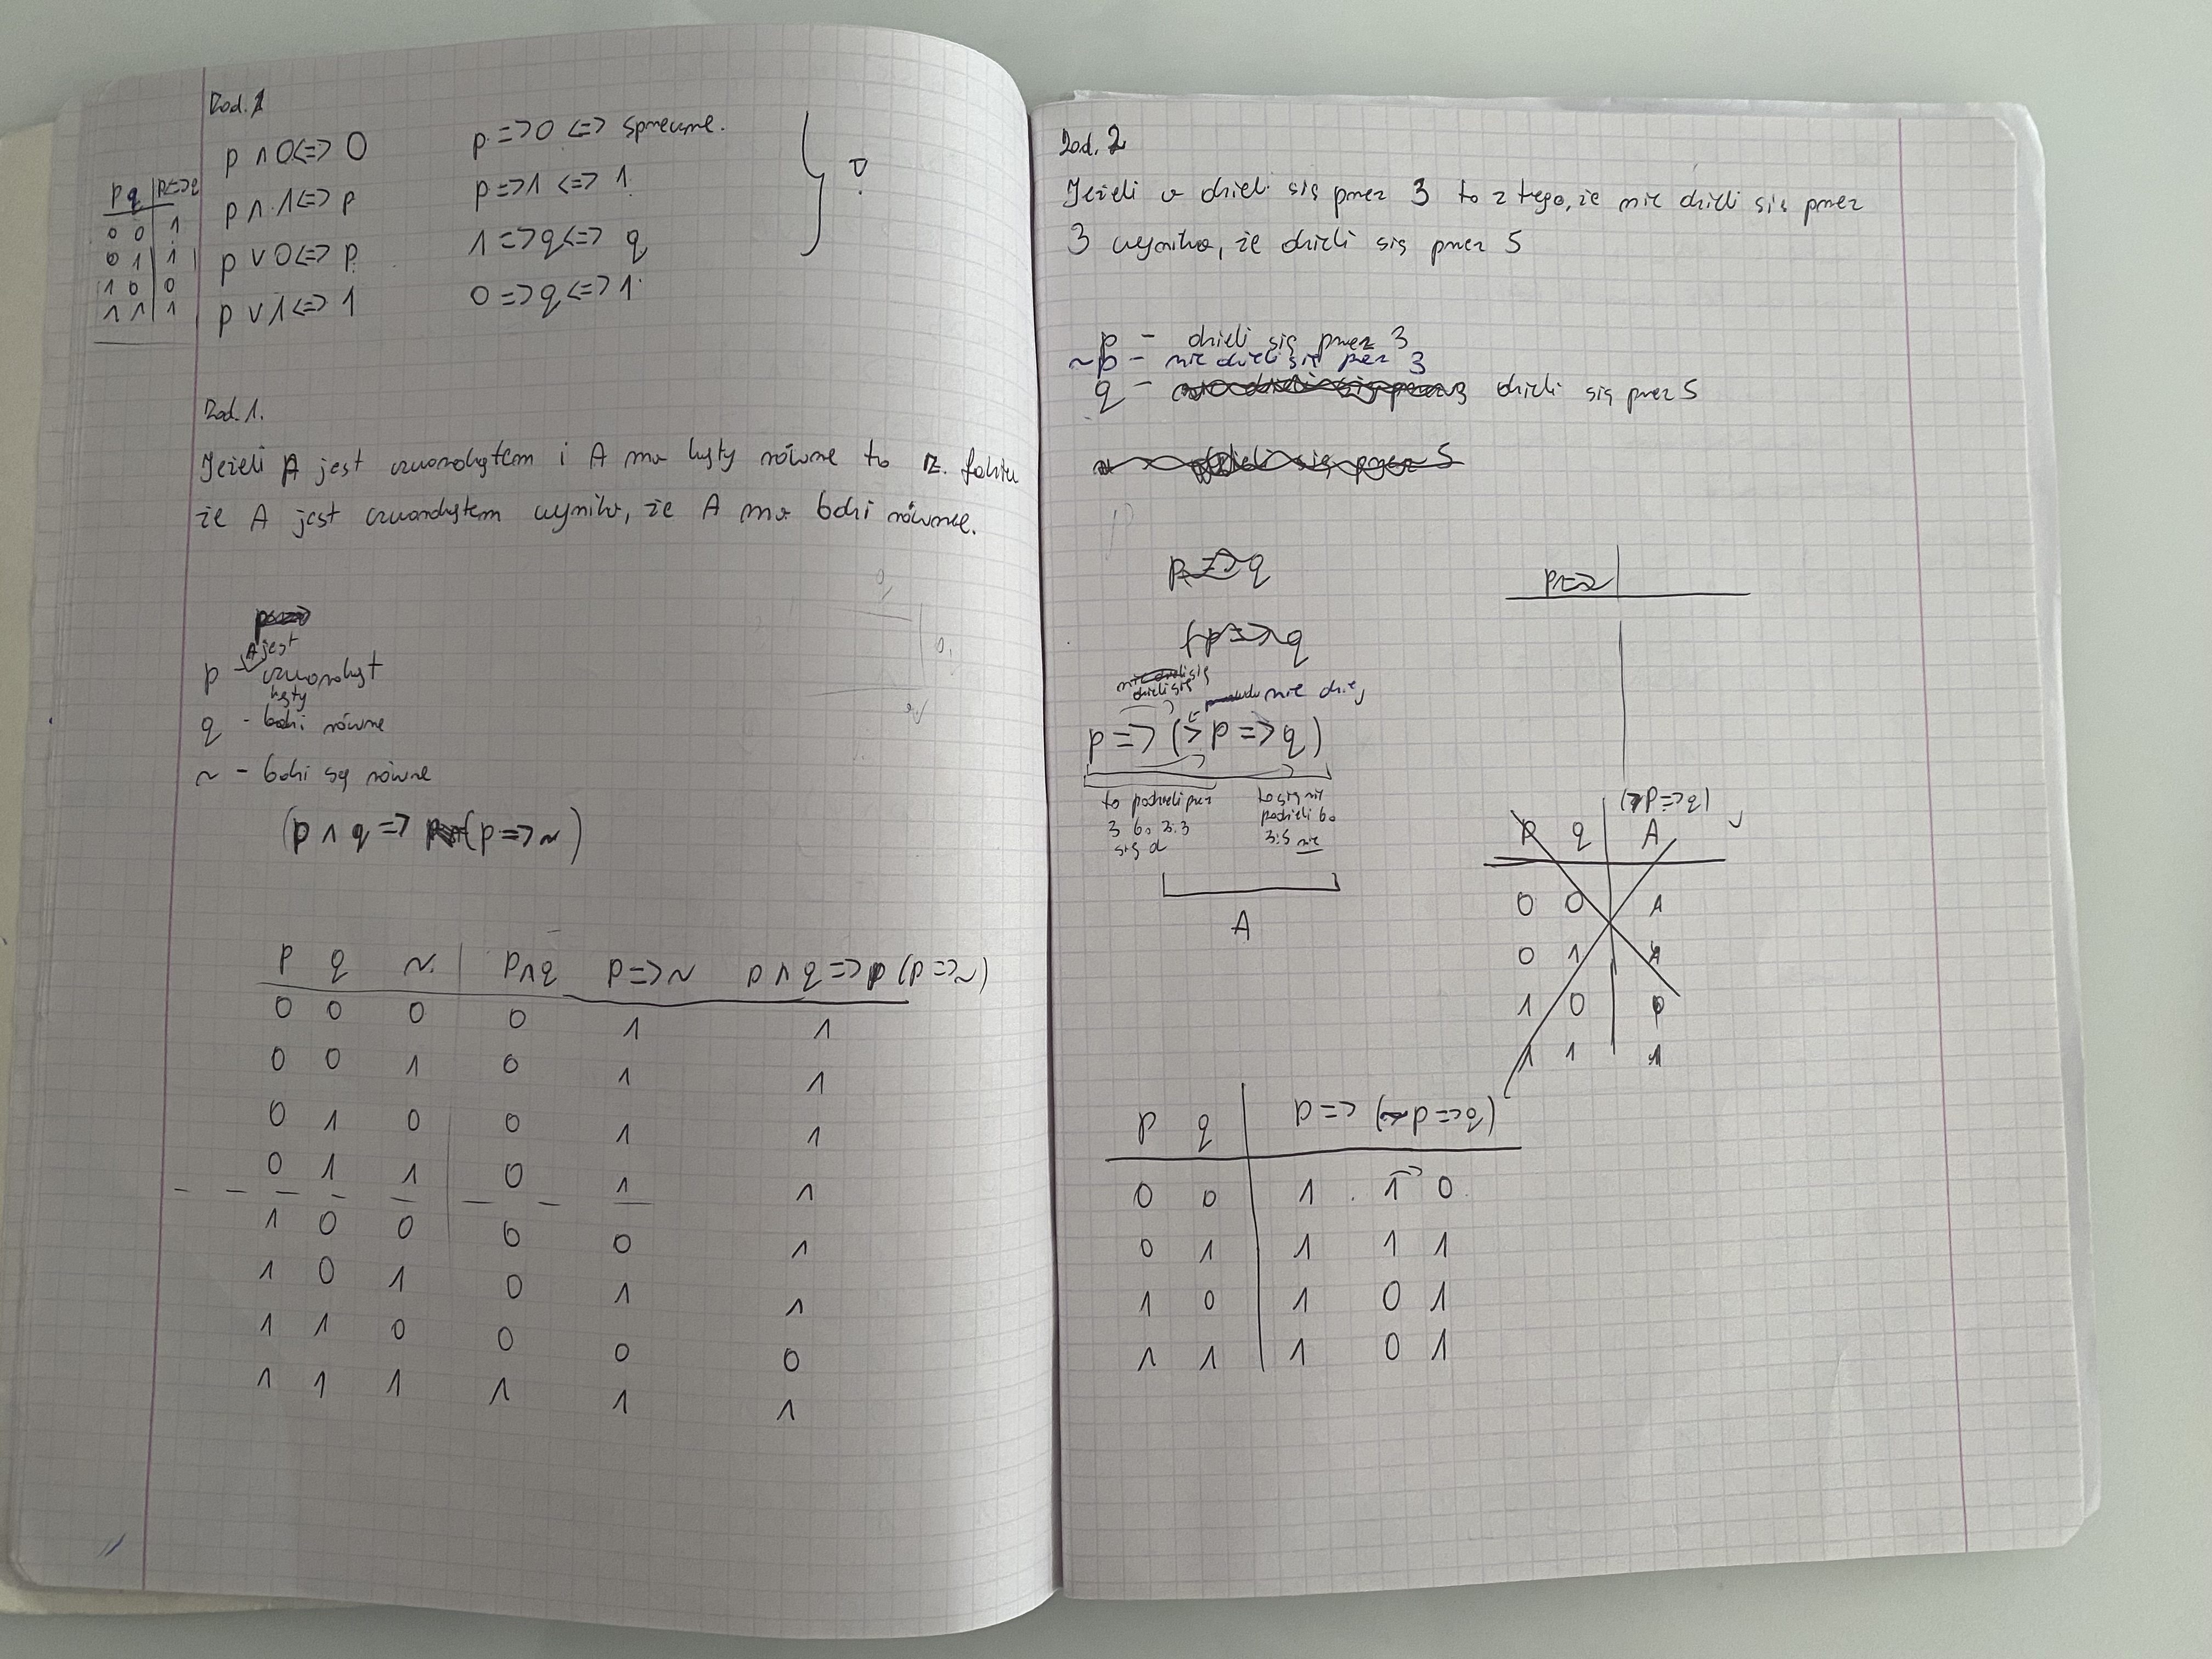 Zad. 1
p ∧ 0 <=> 0
p ∧ 1 <=> p
p ∨ 0 <=> p
p ∨ 1 <=> 1
p => 0 <=> sprzeczne.
p => 1 <=> 1
1 => q <=> q
0 => q <=> 1
p q | p=>q
0 0 | 1
0 1 | 1
1 0 | 0
1 1 | 1
Zad. 1.
Jeżeli A jest czworokątem i A ma kąty równe to z faktu
że A jest czworokątem wynika, że A ma boki równe.
A jest
p - czworokąt
kąty
q - boki równe
~ - boki są równe
(p ∧ q => (p => ~)
p q ~ | p∧q p=>~ p ∧ q => (p=>~)
0 0 0 0 1 1
0 0 1 0 1 1
0 1 0 0 1 1
0 1 1 0 1 1
1 0 0 0 0 1
1 0 1 0 1 1
1 1 0 0 0 0
1 1 1 1 1 1
Zad. 2
Jeżeli a dzieli się przez 3 to z tego, że nie dzieli się przez
3 wynika, że dzieli się przez 5
p - dzieli się przez 3
~p - nie dzieli się przez 3
q - dzieli się przez 5
p => q
p => q
p=>
dzieli się
nie dziej
p => (~p => q)
to podzieli przez
3 bo 3:3
się d
to się nie
podzieli bo
3:5 nie
A
(~p=>q)
p q | A
0 0 1
0 1
1 0
1 1 1
p q | p => (~p=>q)
0 0 | 1 1 0
0 1 | 1 1 1
1 0 | 1 0 1
1 1 | 1 0 1